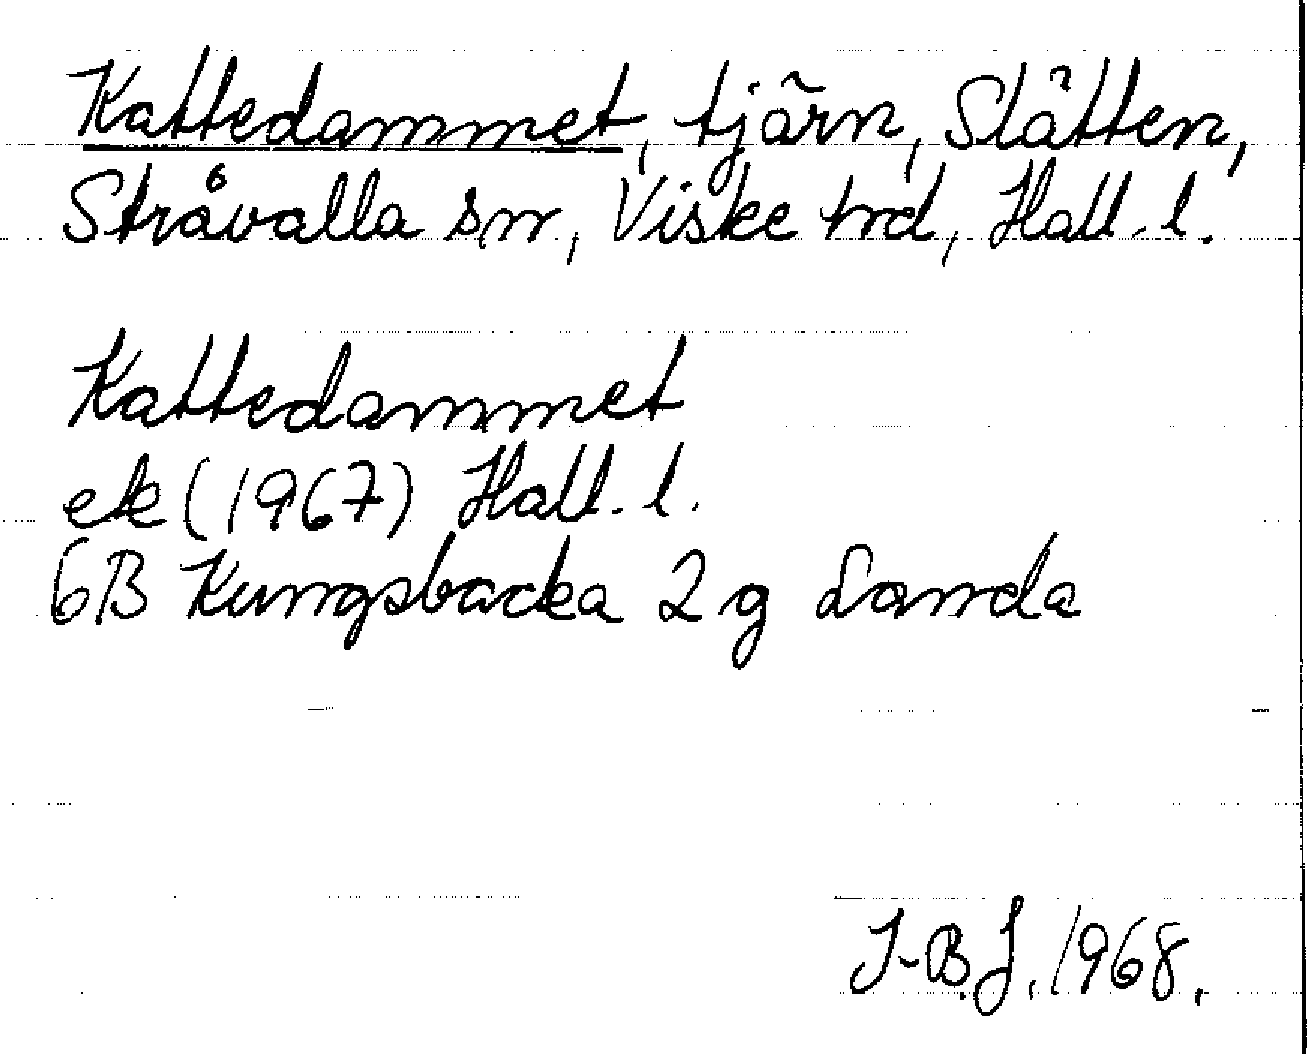 Kattedammet, tjärn, Slätten,
Stråvalla sn, Viske hd, Hall. l.
Kattedammet
ek (1967) Hall. l.
6B Kungsbacka 2 g Landa
I-B.J. 1968.